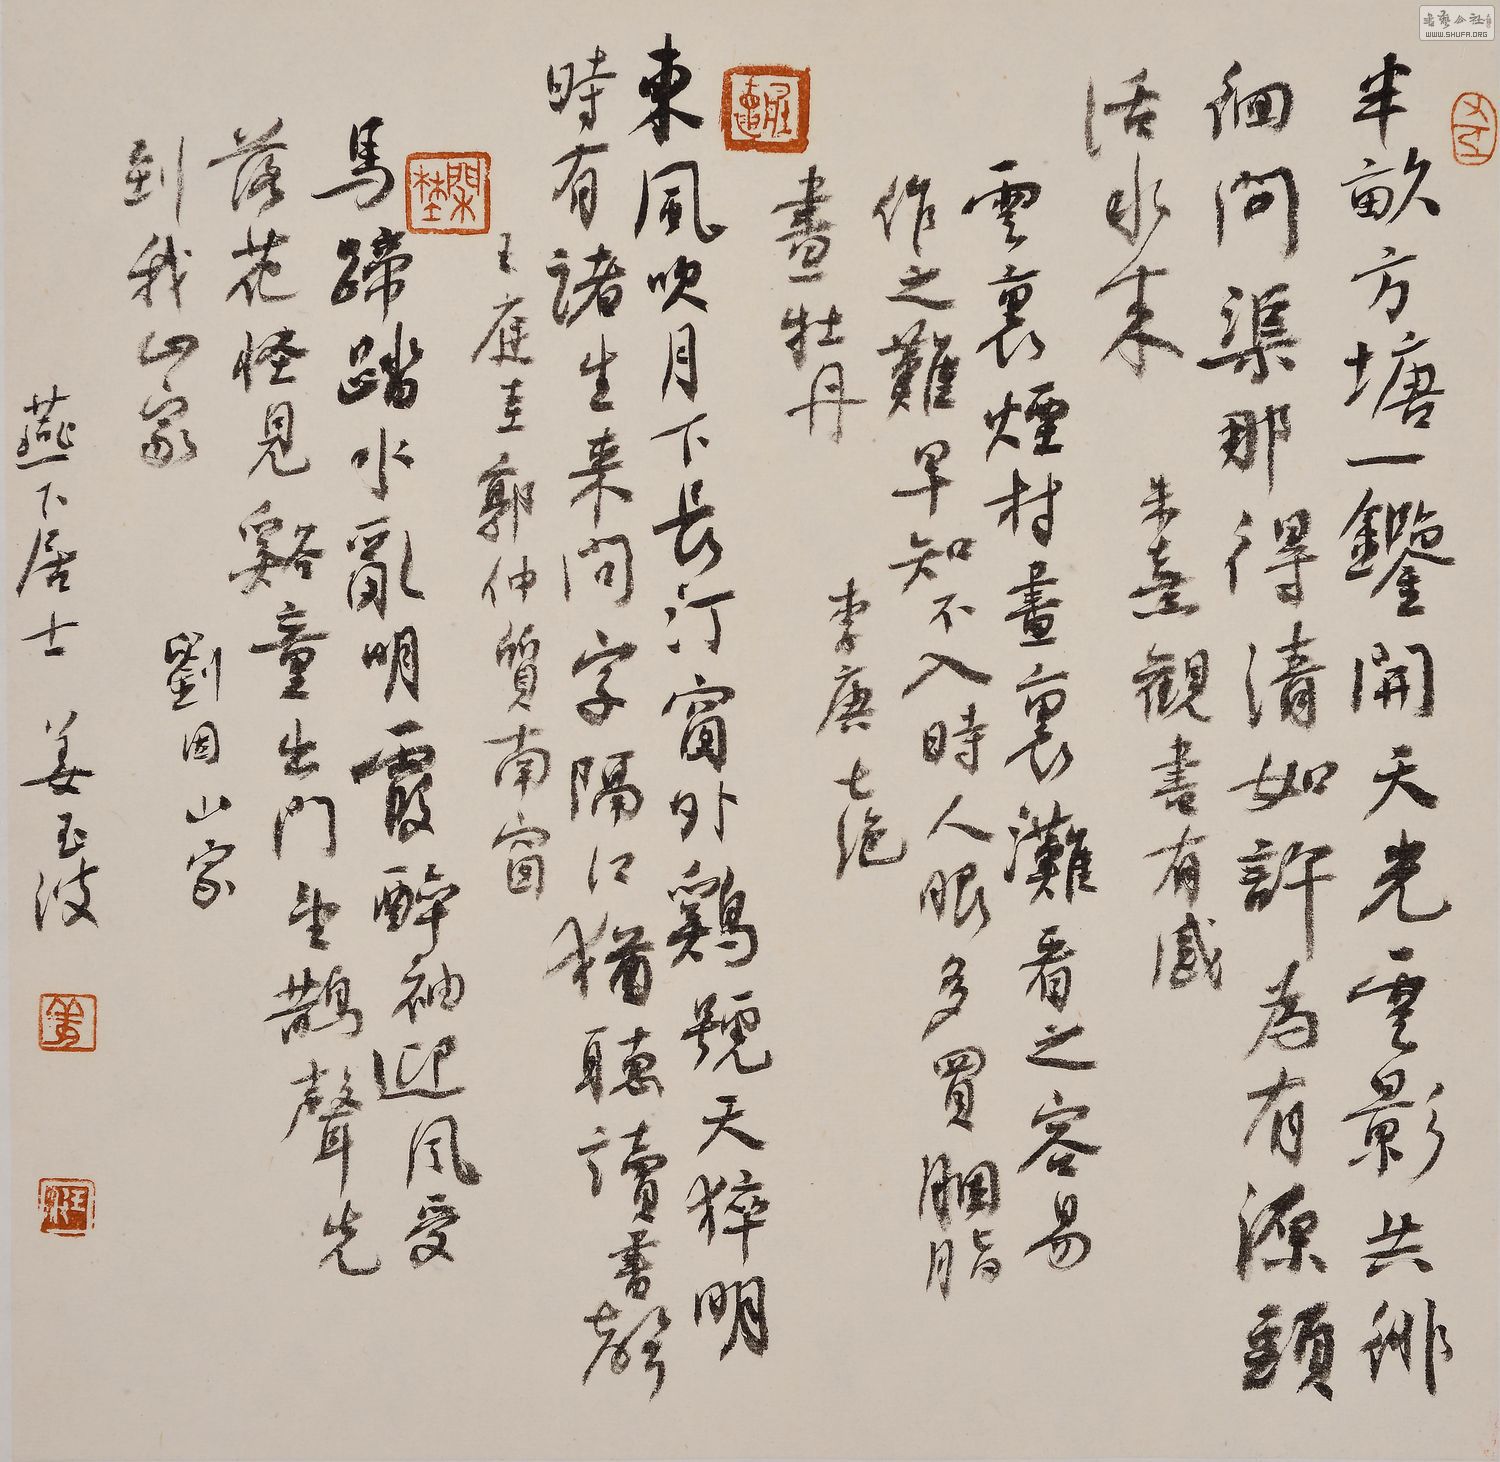 半畝方塘一鑒開天光雲影共徘
徊問渠那得清如許為有源頭
活水來
朱熹觀書有感
雲裏煙村畫裏灘看之容易
作之難早知不入時人眼多買胭脂
畫牡丹
李唐七絕
東風吹月下長汀窗外鷄號天猝明
時有諸生來問字隔江猶聽讀書聲
王庭圭郭仲質南窗
馬蹄踏水亂明霞醉袖迎風受
落花怪見谿童出門望鵲聲先
到我山家
劉因山家
燕下居士 姜玉波
書藝公社
WWW.SHUFA.ORG